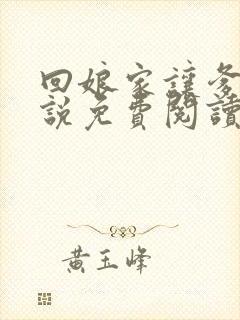 回娘家讓爹
說免費閱讀
黃玉峰